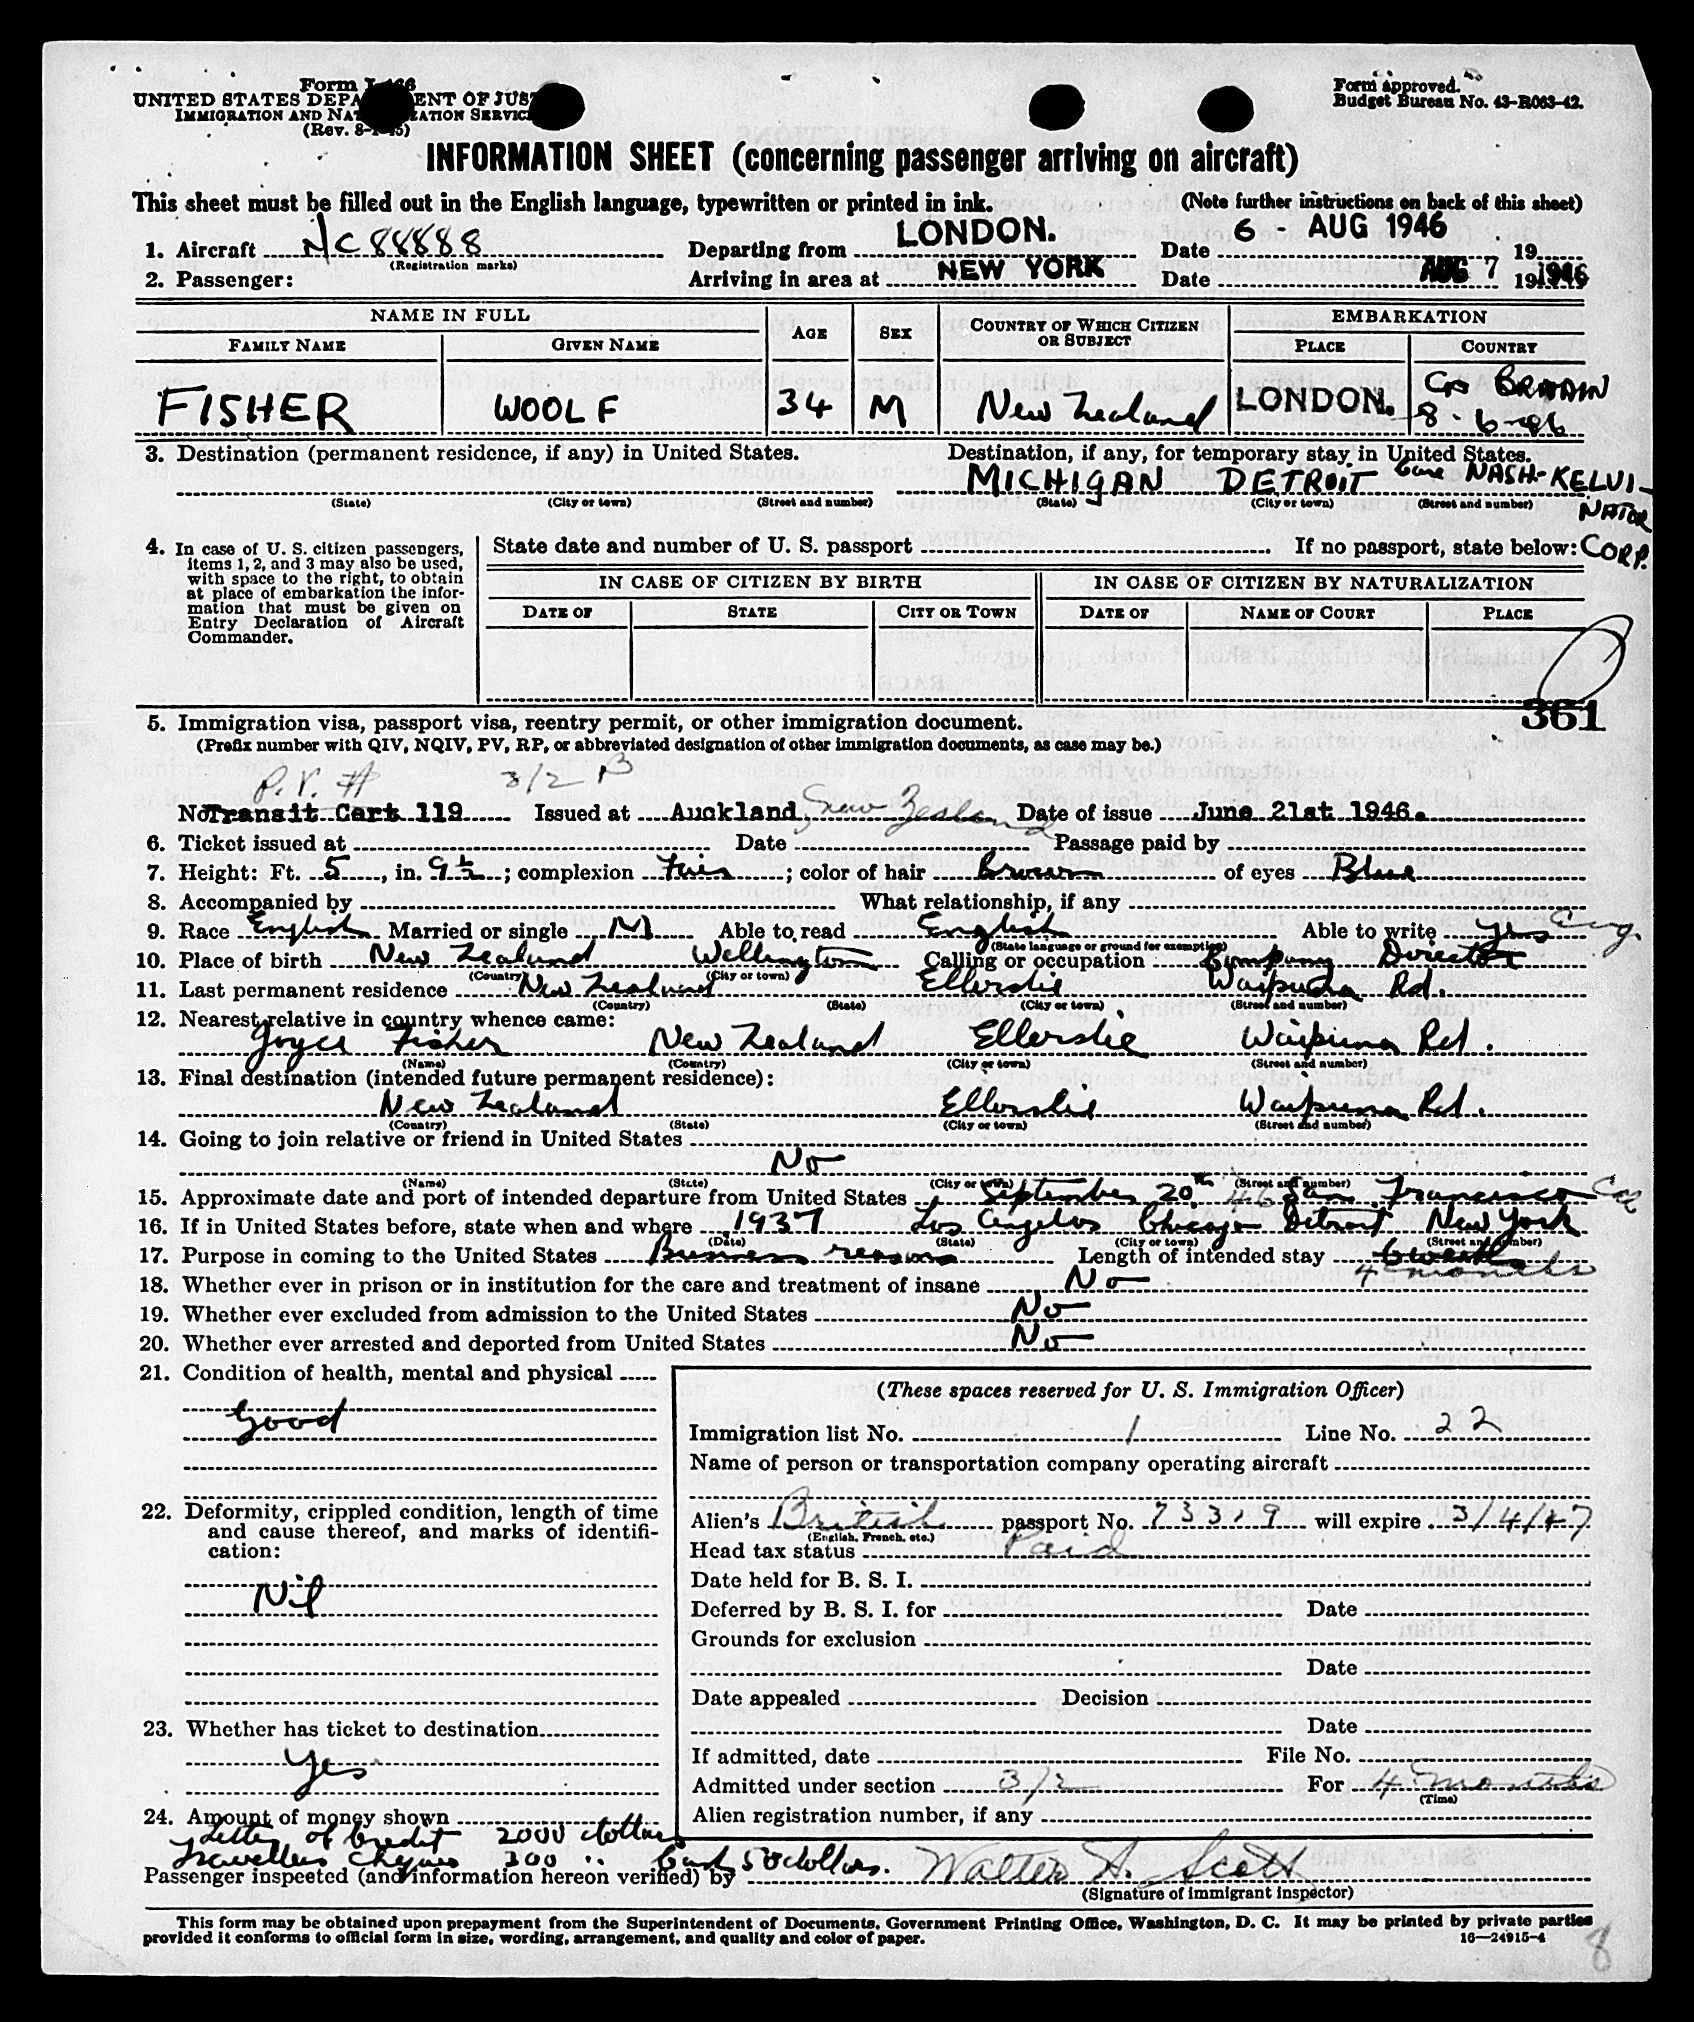 Form I-466
UNITED STATES DEPA ENT OF JUS
IMMIGRATION AND NAT ZATION SERVIC
(Rev. 8-1-45)
Form approved.
Budget Bureau No. 43-R063-42.
INFORMATION SHEET (concerning passenger arriving on aircraft)
This sheet must be filled out in the English language, typewritten or printed in ink. (Note further instructions on back of this sheet)
1. Aircraft NC 88888 Departing from LONDON. Date 6 - AUG 1946 19
(Registration marks)
2. Passenger: Arriving in area at NEW YORK Date AUG 7 1946
NAME IN FULL AGE SEX COUNTRY OF WHICH CITIZEN OR SUBJECT EMBARKATION
FAMILY NAME GIVEN NAME PLACE COUNTRY
FISHER WOOLF 34 M New Zealand LONDON. Gt BRITAIN
3. Destination (permanent residence, if any) in United States. Destination, if any, for temporary stay in United States.
MICHIGAN DETROIT Care NASH-KELVI-
NATOR
CORP.
(State) (City or town) (Street and number) (State) (City or town) (Street and number)
4. In case of U. S. citizen passengers, items 1, 2, and 3 may also be used, with space to the right, to obtain at place of embarkation the information that must be given on Entry Declaration of Aircraft Commander.
State date and number of U. S. passport If no passport, state below:
IN CASE OF CITIZEN BY BIRTH IN CASE OF CITIZEN BY NATURALIZATION
DATE OF STATE CITY OR TOWN DATE OF NAME OF COURT PLACE
361
5. Immigration visa, passport visa, reentry permit, or other immigration document.
(Prefix number with QIV, NQIV, PV, RP, or abbreviated designation of other immigration documents, as case may be.)
P.V. # 3/2 B
No Transit Cert 119 Issued at Auckland, New Zealand Date of issue June 21st 1946.
6. Ticket issued at Date Passage paid by
7. Height: Ft. 5, in. 9½; complexion Fair; color of hair Brown of eyes Blue
8. Accompanied by What relationship, if any
9. Race English Married or single M Able to read English Able to write yes Eng.
(State language or ground for exemption)
10. Place of birth New Zealand Wellington Calling or occupation Company Director
(Country) (City or town)
11. Last permanent residence New Zealand Ellerslie Waipuna Rd.
(Country) (State) (City or town) (Street and number)
12. Nearest relative in country whence came:
Joyce Fisher New Zealand Ellerslie Waipuna Rd.
(Name) (Country) (City or town) (Street and number)
13. Final destination (intended future permanent residence):
New Zealand Ellerslie Waipuna Rd.
(Country) (State) (City or town) (Street and number)
14. Going to join relative or friend in United States
No
(Name) (State) (City or town) (Street and number)
15. Approximate date and port of intended departure from United States September 20th 46 San Francisco Cal
16. If in United States before, state when and where 1937 Los Angelos Chicago Detroit New York
(Date) (State) (City or town) (Street and number)
17. Purpose in coming to the United States Business reasons Length of intended stay 6 weeks
4 months
18. Whether ever in prison or in institution for the care and treatment of insane No
19. Whether ever excluded from admission to the United States No
20. Whether ever arrested and deported from United States No
21. Condition of health, mental and physical
Good
22. Deformity, crippled condition, length of time
and cause thereof, and marks of identifi-
cation:
Nil
23. Whether has ticket to destination
Yes
24. Amount of money shown
Letter of Credit 2000 dollars
Travellers Cheques 300 " Cash 50 dollars.
(These spaces reserved for U. S. Immigration Officer)
Immigration list No. 1 Line No. 22
Name of person or transportation company operating aircraft
Alien's British passport No. 73319 will expire 3/4/47
(English, French, etc.)
Head tax status Paid
Date held for B. S. I.
Deferred by B. S. I. for Date
Grounds for exclusion
Date
Date appealed Decision
Date
If admitted, date File No.
Admitted under section 3/2 For 4 months
(Time)
Alien registration number, if any
Passenger inspected (and information hereon verified) by Walter A. Scott
(Signature of immigrant inspector)
This form may be obtained upon prepayment from the Superintendent of Documents, Government Printing Office, Washington, D. C. It may be printed by private parties
provided it conforms to official form in size, wording, arrangement, and quality and color of paper. 16—24915-4
8